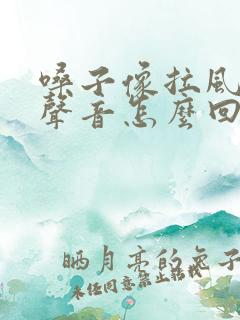 嗓子像拉風
聲音怎麼回
晒月亮的兔子
未经同意禁止转载